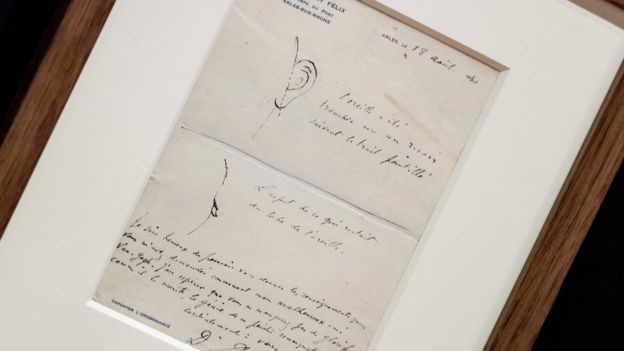 FÉLIX
DU PORT
ARLES-SUR-RHONE
ARLES, LE 18 août
L'oreille a été
tranchée avec un rasoir
suivant le trait pointillé
L'aspect de ce qui restait
du lobe de l'oreille
Je suis heureux de pouvoir vous donner les renseignements que
vous m'avez demandés concernant mon malheureux ami
Van Gogh. J'espère que vous ne manquerez pas de glorifier
comme il le mérite le génie de ce peintre remarquable
Cordialement à vous
Dr
RAPPORTER L'ORDONNANCE